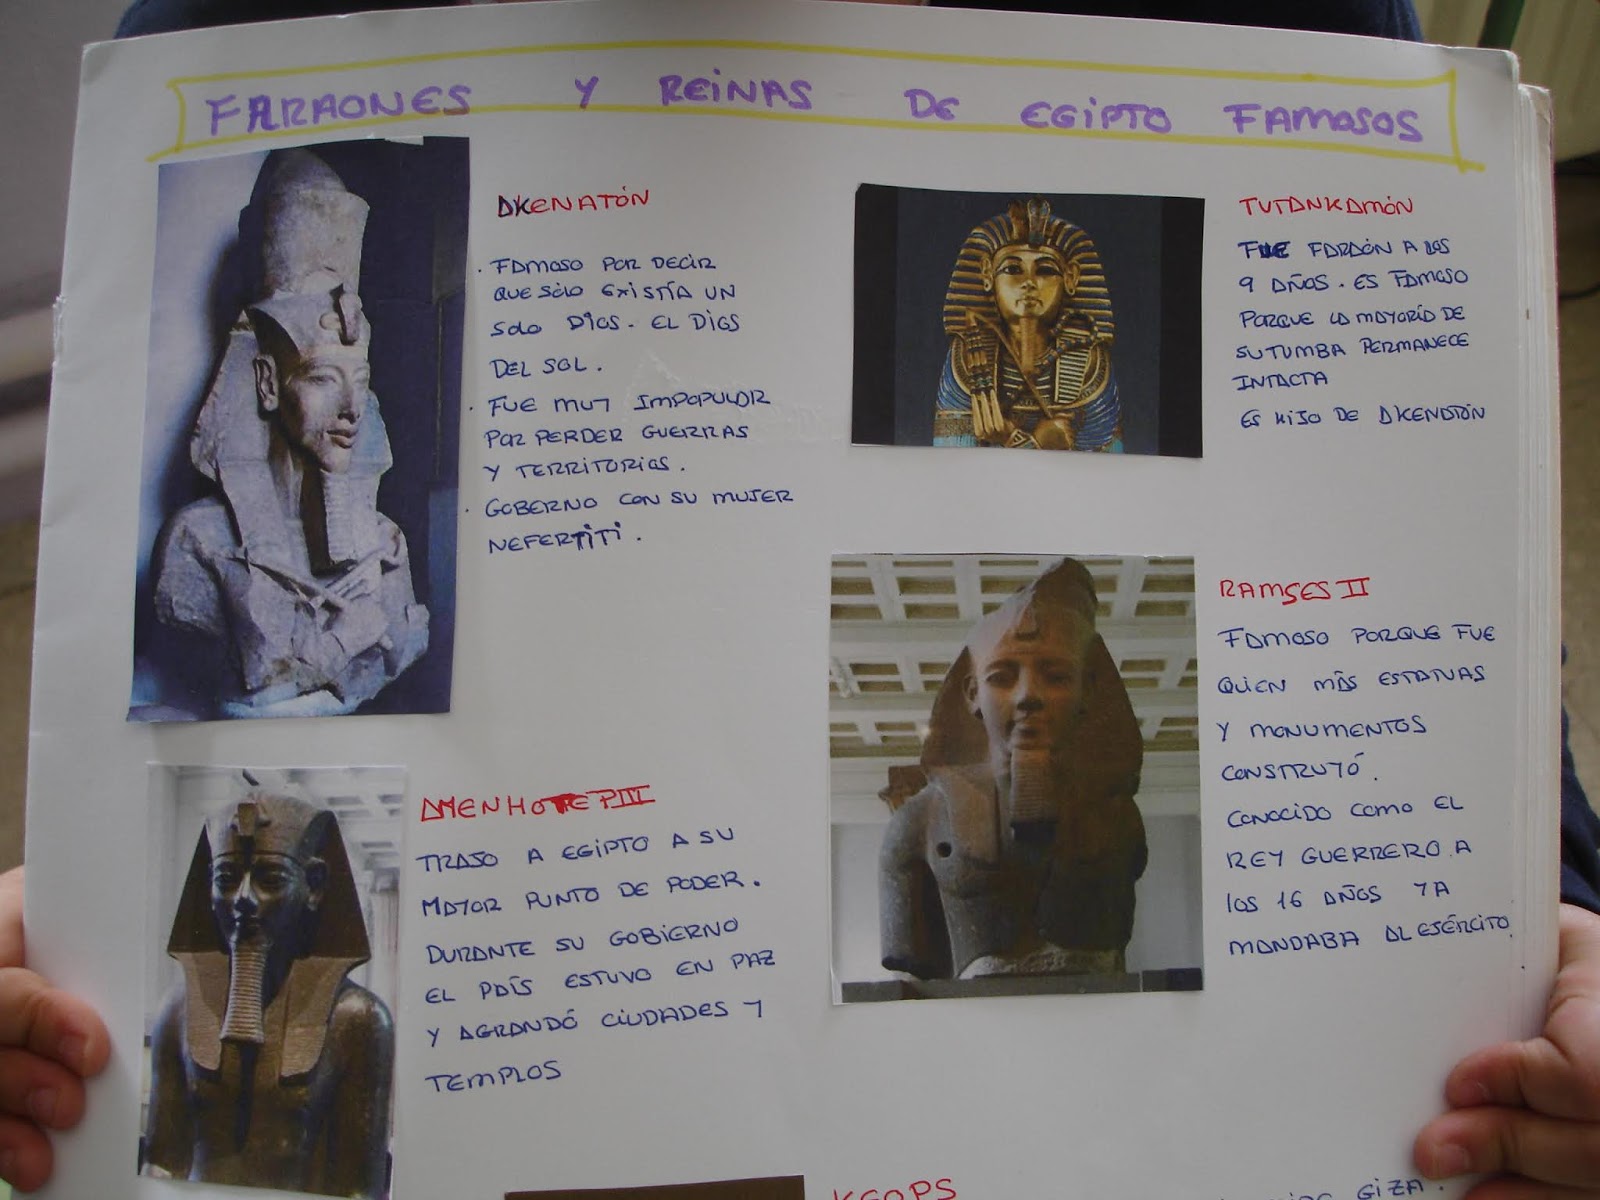 FARAONES Y REINAS DE EGIPTO FAMOSOS
AKENATÓN
. FAMOSO POR DECIR
QUE SÓLO EXISTÍA UN
SOLO DIOS. EL DIOS
DEL SOL.
. FUE MUY IMPOPULAR
POR PERDER GUERRAS
Y TERRITORIOS.
. GOBERNO CON SU MUJER
NEFERTITI.
TUTANKAMÓN
FUE FARAÓN A LOS
9 AÑOS. ES FAMOSO
PORQUE LA MAYORÍA DE
SU TUMBA PERMANECE
INTACTA
ES HIJO DE AKENATÓN
AMENHOTEP III
TRAJO A EGIPTO A SU
MAYOR PUNTO DE PODER.
DURANTE SU GOBIERNO
EL PAÍS ESTUVO EN PAZ
Y AGRANDÓ CIUDADES Y
TEMPLOS
RAMSES II
FAMOSO PORQUE FUE
QUIEN MÁS ESTATUAS
Y MONUMENTOS
CONSTRUYÓ.
CONOCIDO COMO EL
REY GUERRERO. A
LOS 16 AÑOS YA
MANDABA AL EJÉRCITO
KEOPS
GIZA.